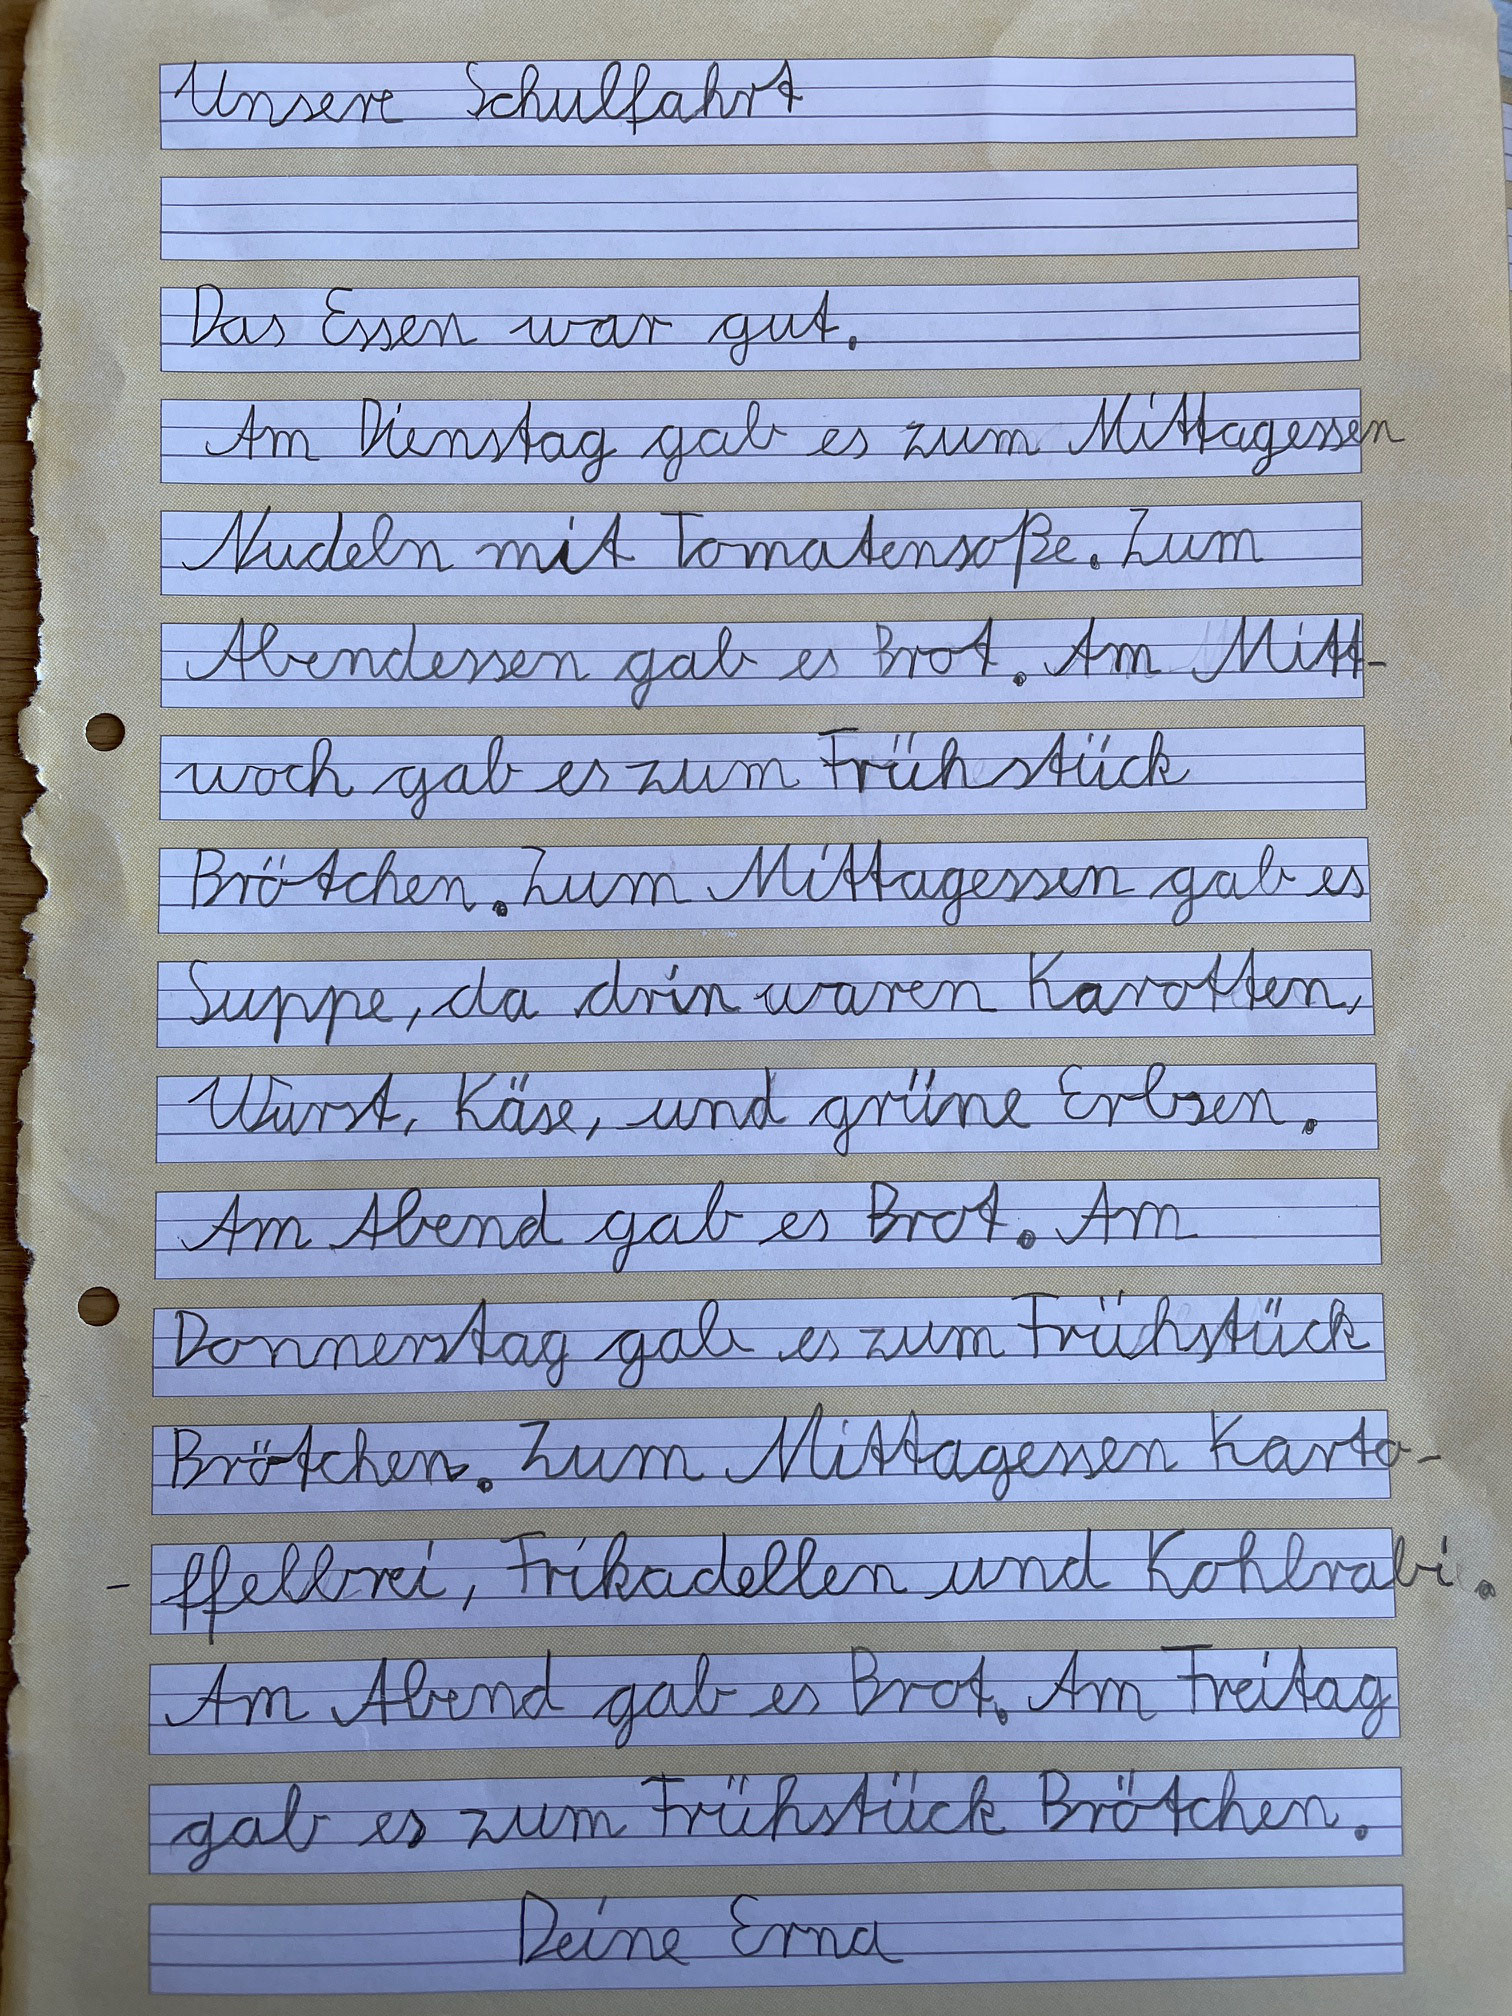 Unsere Schulfahrt
Das Essen war gut.
Am Dienstag gab es zum Mittagessen
Nudeln mit Tomatensoße. Zum
Abendessen gab es Brot. Am Mitt-
woch gab es zum Frühstück
Brötchen. Zum Mittagessen gab es
Suppe, da drin waren Karotten,
Wurst, Käse, und grüne Erbsen.
Am Abend gab es Brot. Am
Donnerstag gab es zum Frühstück
Brötchen. Zum Mittagessen Karto-
- ffelbrei, Frikadellen und Kohlrabi.
Am Abend gab es Brot. Am Freitag
gab es zum Frühstück Brötchen.
Deine Erna